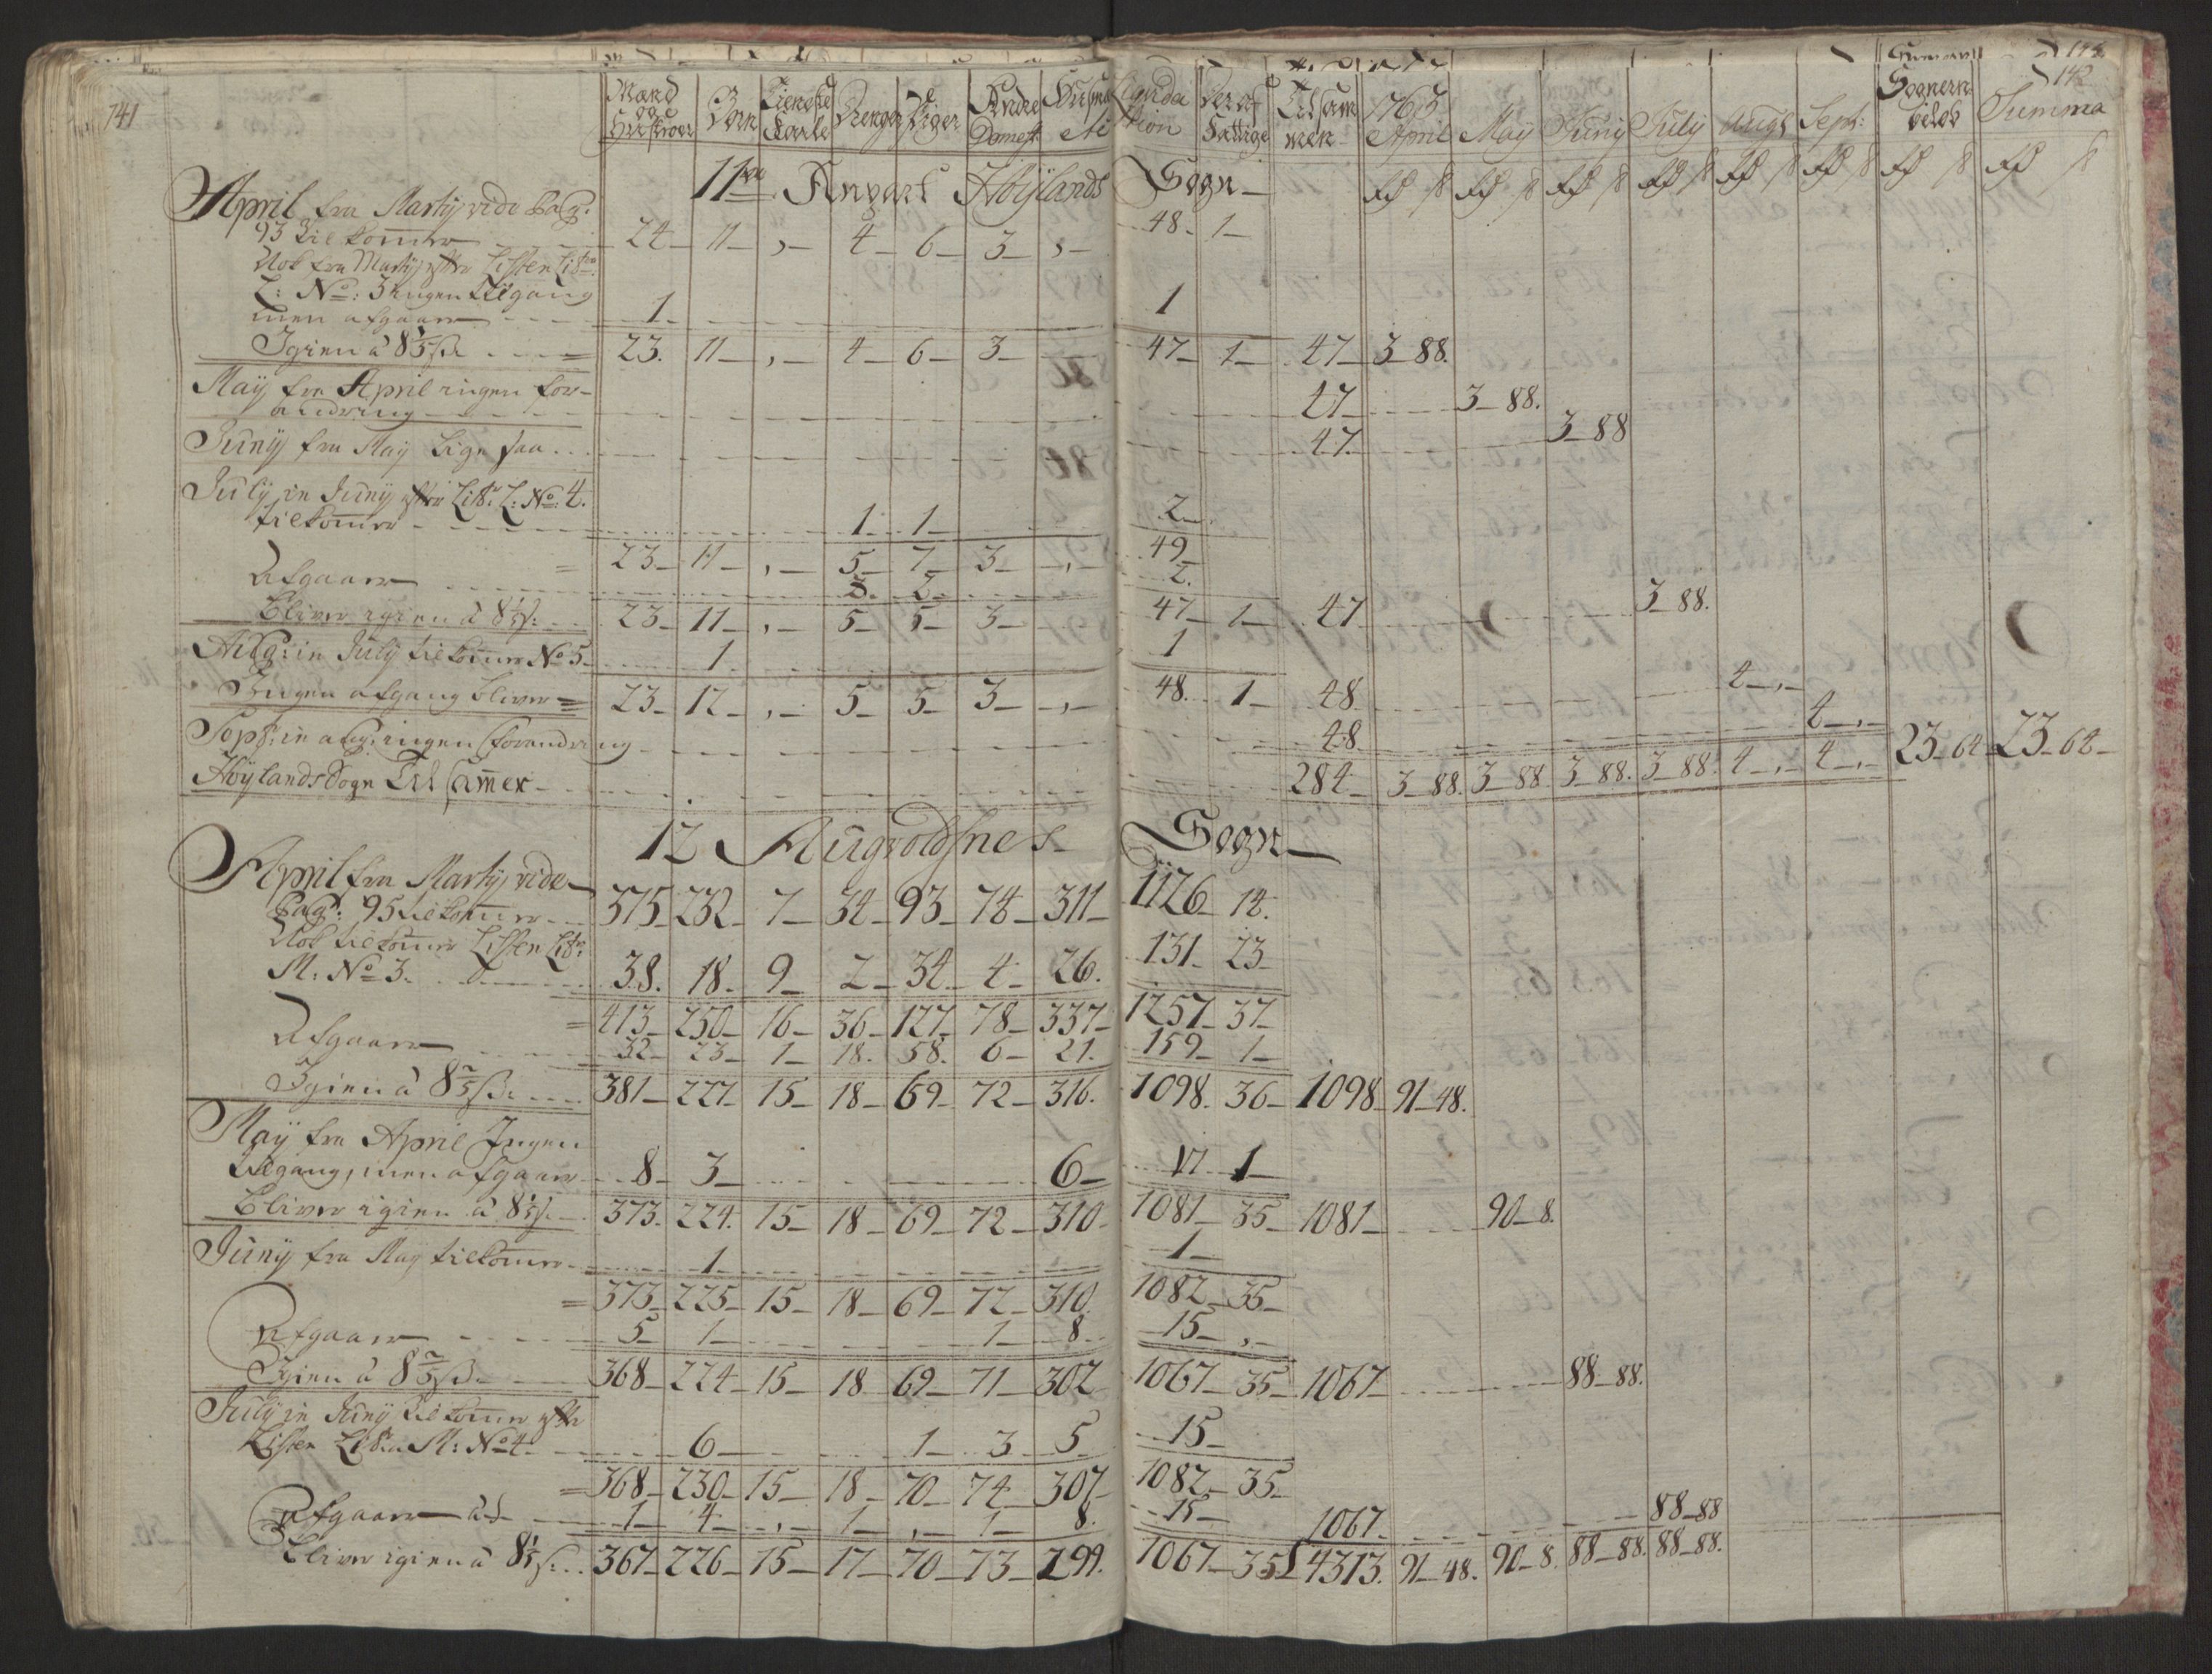 141
142
Mænd og Hustruer | Børn | Tieneste Karle | Drenge | Piger | Andre Domest | Huusmænd
Deraf Fattige | Tilsammen | 1765 April | May | Juny | July | Aug | Sept: | Sognern beløb | Summa
Rd ß Rd ß Rd ß Rd ß Rd ß Rd ß Rd ß Rd ß
11te Høÿlands Sogn
April fra Marty vide Pag:
93 tilkommer 24 11 , 4 6 3 , 48 1
Nok fra Marty efter Listen Litr
L: No: 3 ingen tilgang
men afgaar 1 1
Igien à 8 1/5 ß 23. 11 , 4 6 3 47 1 47 3 88.
May fra April ingen for-
andring 47 3 88.
Juny fra May lige saa 47. 3 88
July in Juny efter Litr. L: No: 4.
tilkommer 1 1 2
= 23 11 , 5 7 3 , 49
Afgaar 2. 2.
Bliver igien à 8 1/5 ß: 23 11 , 5 5 3 47 1 47 3 88.
Aug: in July tilkommer No 5 1 1
Ingen afgang bliver = 23 12 , 5 5 3 , 48. 1 48 4 ,
Sept: in aug: ingen forandring 48 4 ,
Høylands Sogn Tilsammen 284 3 88. 3 88 3 88. 3 88. 4 , 4 , 23 64 23 64
12 Augvoldsnes Sogn
April fra Marty vide
Pag: 95 tilkommer 375 232 7 34 93 74 311 1126 14.
Nok tilkommer Listen Litr:
M: No 3. 38. 18. 9 2 34 4 26. 131 23
= 413 250 16 36 127 78 337 1257 37
Afgaar 32 23 1 18. 58. 6 21. 159 1
Igien à 8 1/5 ß: 381 227 15 18 69 72 316. 1098. 36 1098 91 48.
May fra April Ingen
tilgang, men afgaar 8 3 6 17 1
Bliver igien à 8 1/5 ß. 373. 224. 15 18 69 72 310 1081 35 1081 90 8.
Juny fra May tilkommer 1 1
= 373 225 15 18 69 72 310 1082 35
Afgaar 5 1 1 8 15 ,
Igien à 8 1/5 ß. 368 224 15 18 69 71 302 1067 35 1067 88 88.
July in Juny tilkommer efter
Listen Litra M: No 4. 6 1 3 5 15
= 368 230 15 18 70 74 307 1082 35
Afgaar 1 4 , 1 , 1 8. 15 1067 88 88
Bliver igien à 8 1/5 ß 367 226 15 17 70 73 299. 1067 35 4313. 91 48. 90 8. 88 88. 88 88.